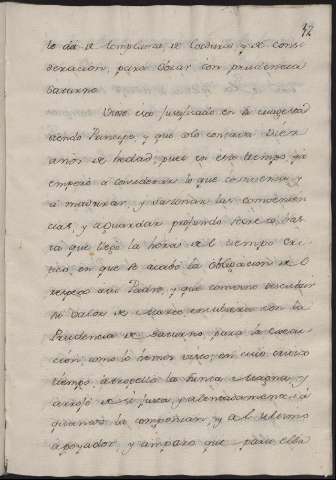 42
le da de templanza, de cordura, y de consi
deracion, para obrar con prudencia
Saturno
Viose esto justificado en la Magestad
siendo Principe, y que solo contaba diez
años de hedad, pues en este tiempo ya
empezó a considerar lo que convenia, y
a madurar, y sazonar las convenien
cias, y aguardar profundo secreto, has
ta que llegó la hora de el tiempo cri
tico, en que se acabó la obligacion de el
respeto a su Padre, y que convino descubrir
el valor de Marte, con la
Prudencia de Saturno, para la
cion, como lo hemos visto, en cuio
tiempo atropelló la Magna, y
arrojó de si justa, y alentadamente à
quantos la componian, y a el
apoyador, y amparo que para ella